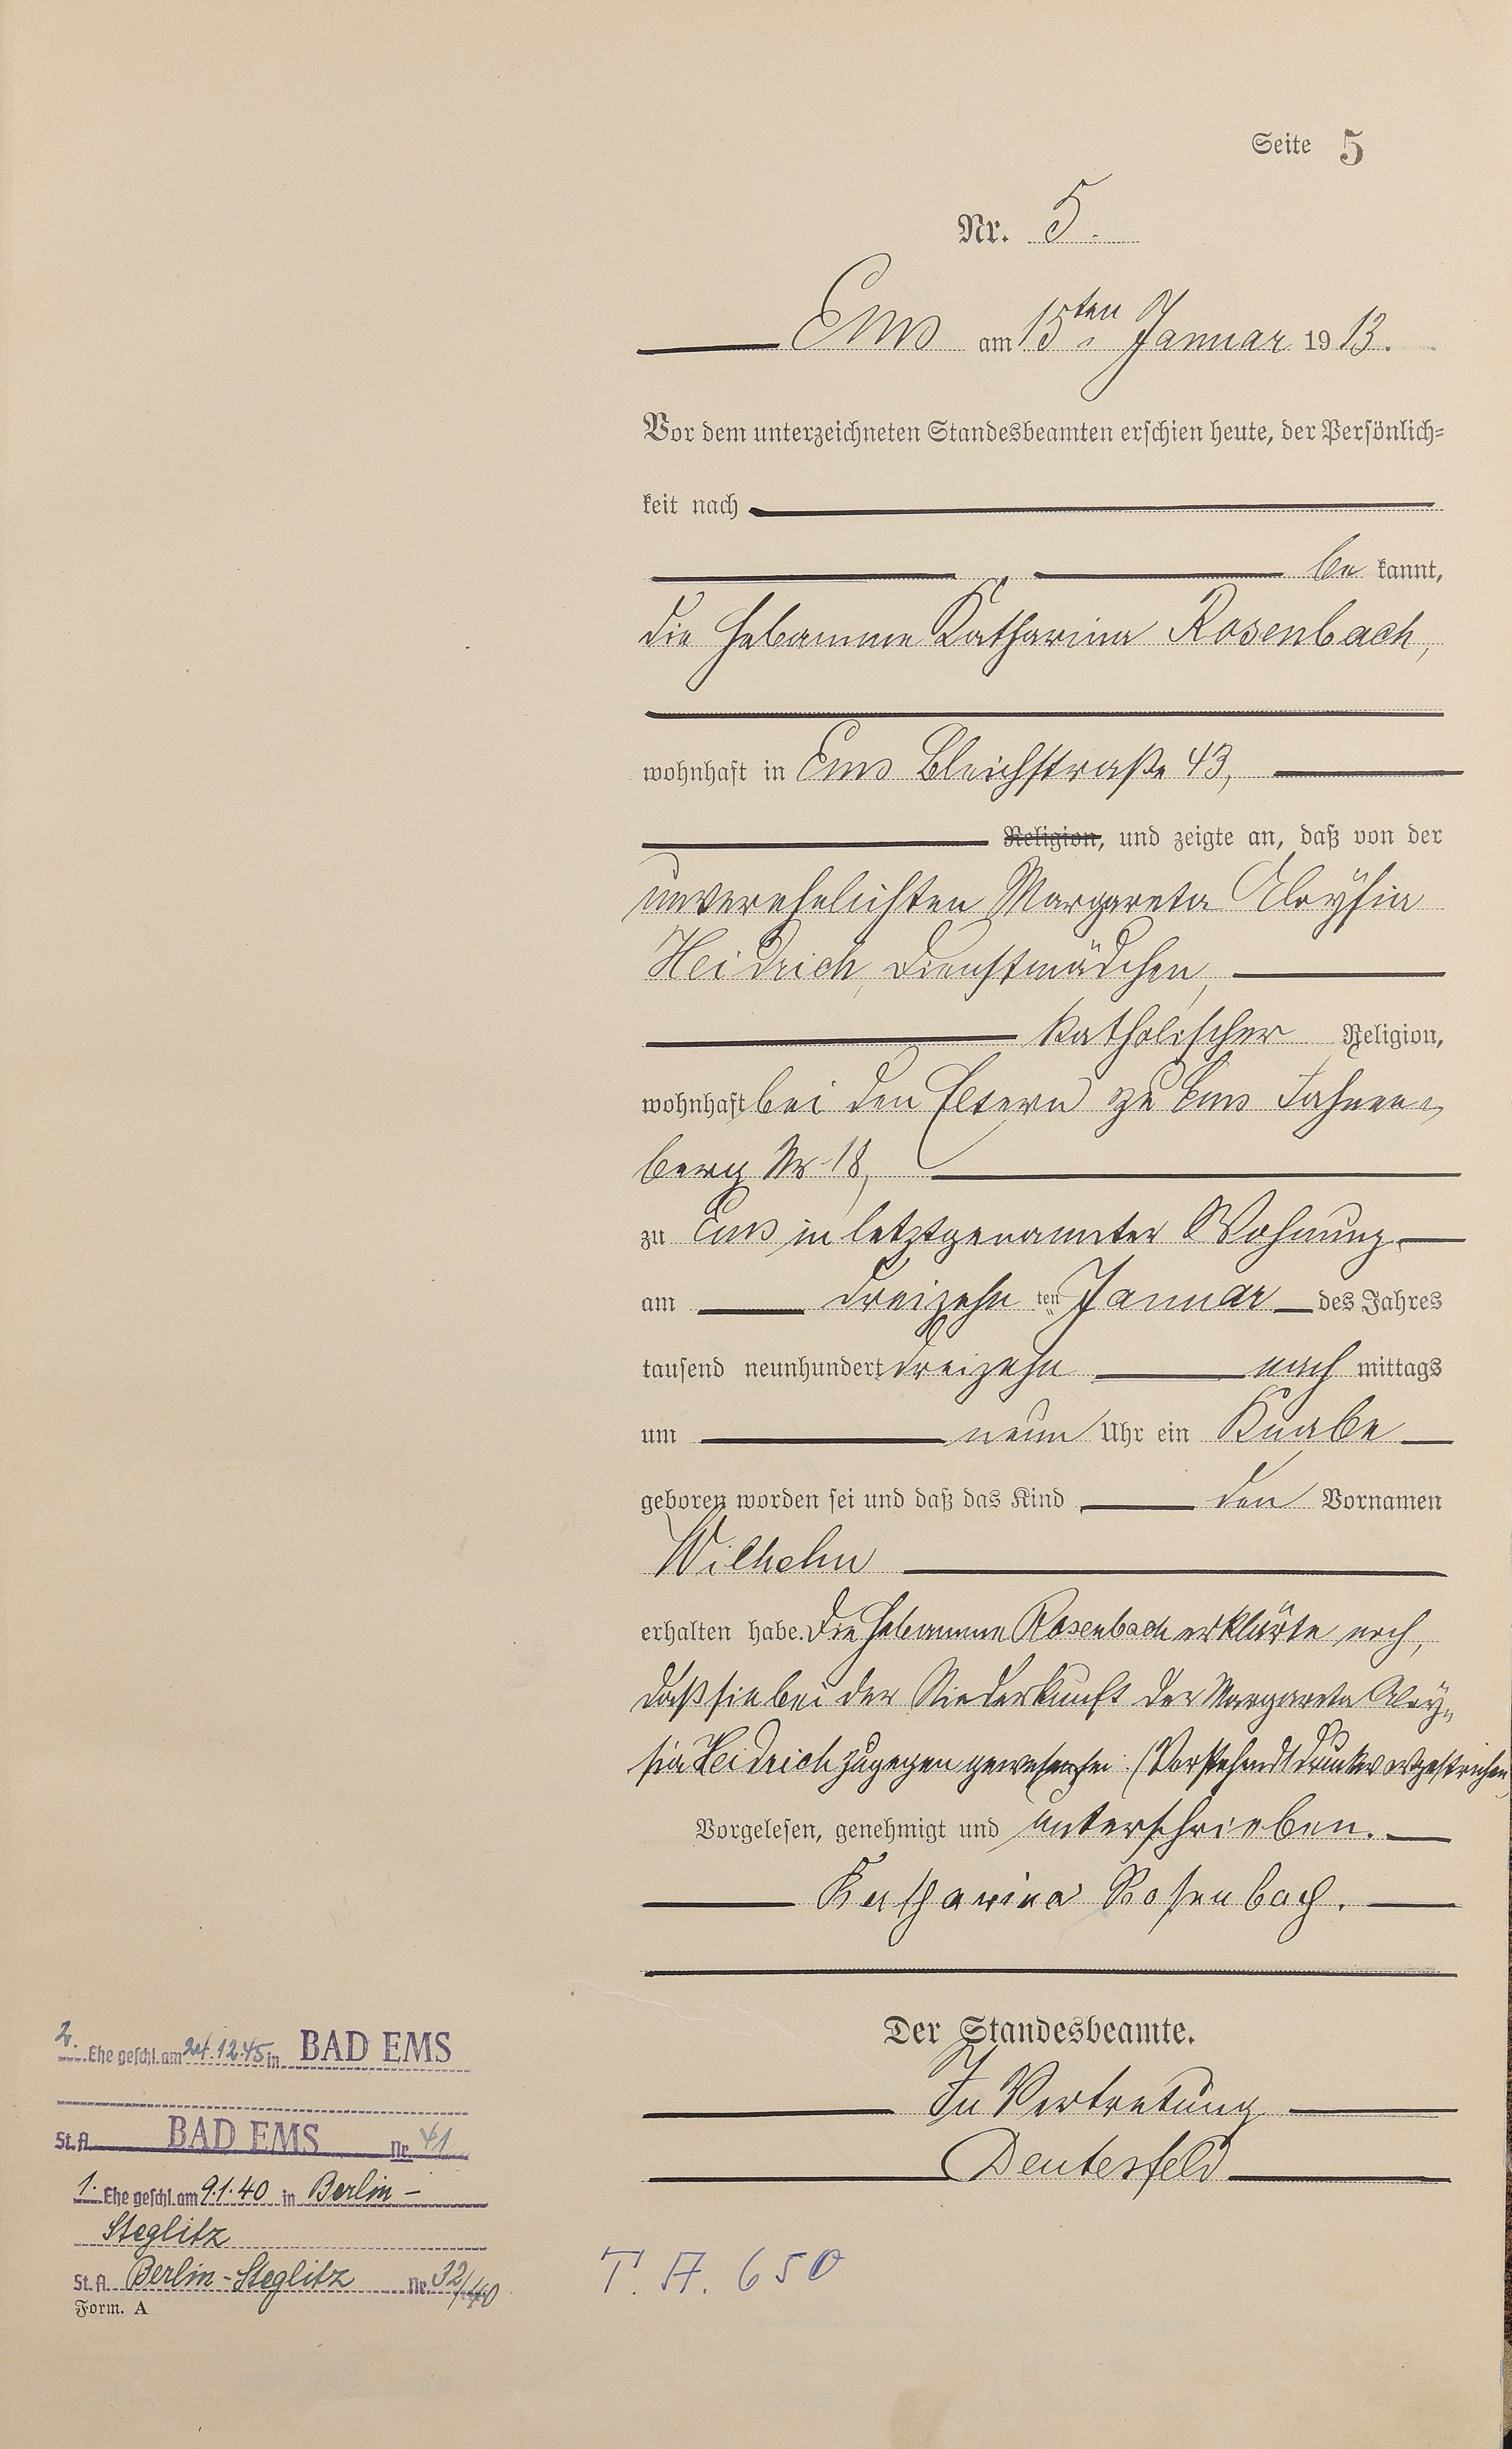 Seite 5
Nr. 5.
Ems am 15ten Januar 1913.
Vor dem unterzeichneten Standesbeamten erschien heute, der Persönlich-
keit nach
be kannt,
die Hebamme Katharina Rosenbach,
wohnhaft in Ems Bleichstraße 43,
Religion, und zeigte an, daß von der
unverehelichten Margareta Aloysia
Heidrich, Dienstmädchen,
katholischer Religion,
wohnhaft bei den Eltern zu Ems Fahnen-
berg Nr 18,
zu Ems in letztgenannter Wohnung
am dreizehn ten Januar des Jahres
tausend neunhundert dreizehn nach mittags
um neun Uhr ein Knabe
geboren worden sei und daß das Kind den Vornamen
Wilhelm
erhalten habe. Die Hebamme Rosenbach erklärte noch,
daß sie bei der Niederkunft der Margareta Aloy-
sia Heidrich zugegen gewesen sei. (Vorstehend 1 Druckwort gestrichen)
Vorgelesen, genehmigt und unterschrieben.
Katharina Rosenbach.
Der Standesbeamte.
In Vertretung
Deutesfeld
2. Ehe geschl. am 24.12.45 in BAD EMS
St. A. BAD EMS Nr. 41
1. Ehe geschl. am 9.1.40 in Berlin-
Steglitz
St. A. Berlin-Steglitz Nr. 32/40
Form. A
T. A. 650